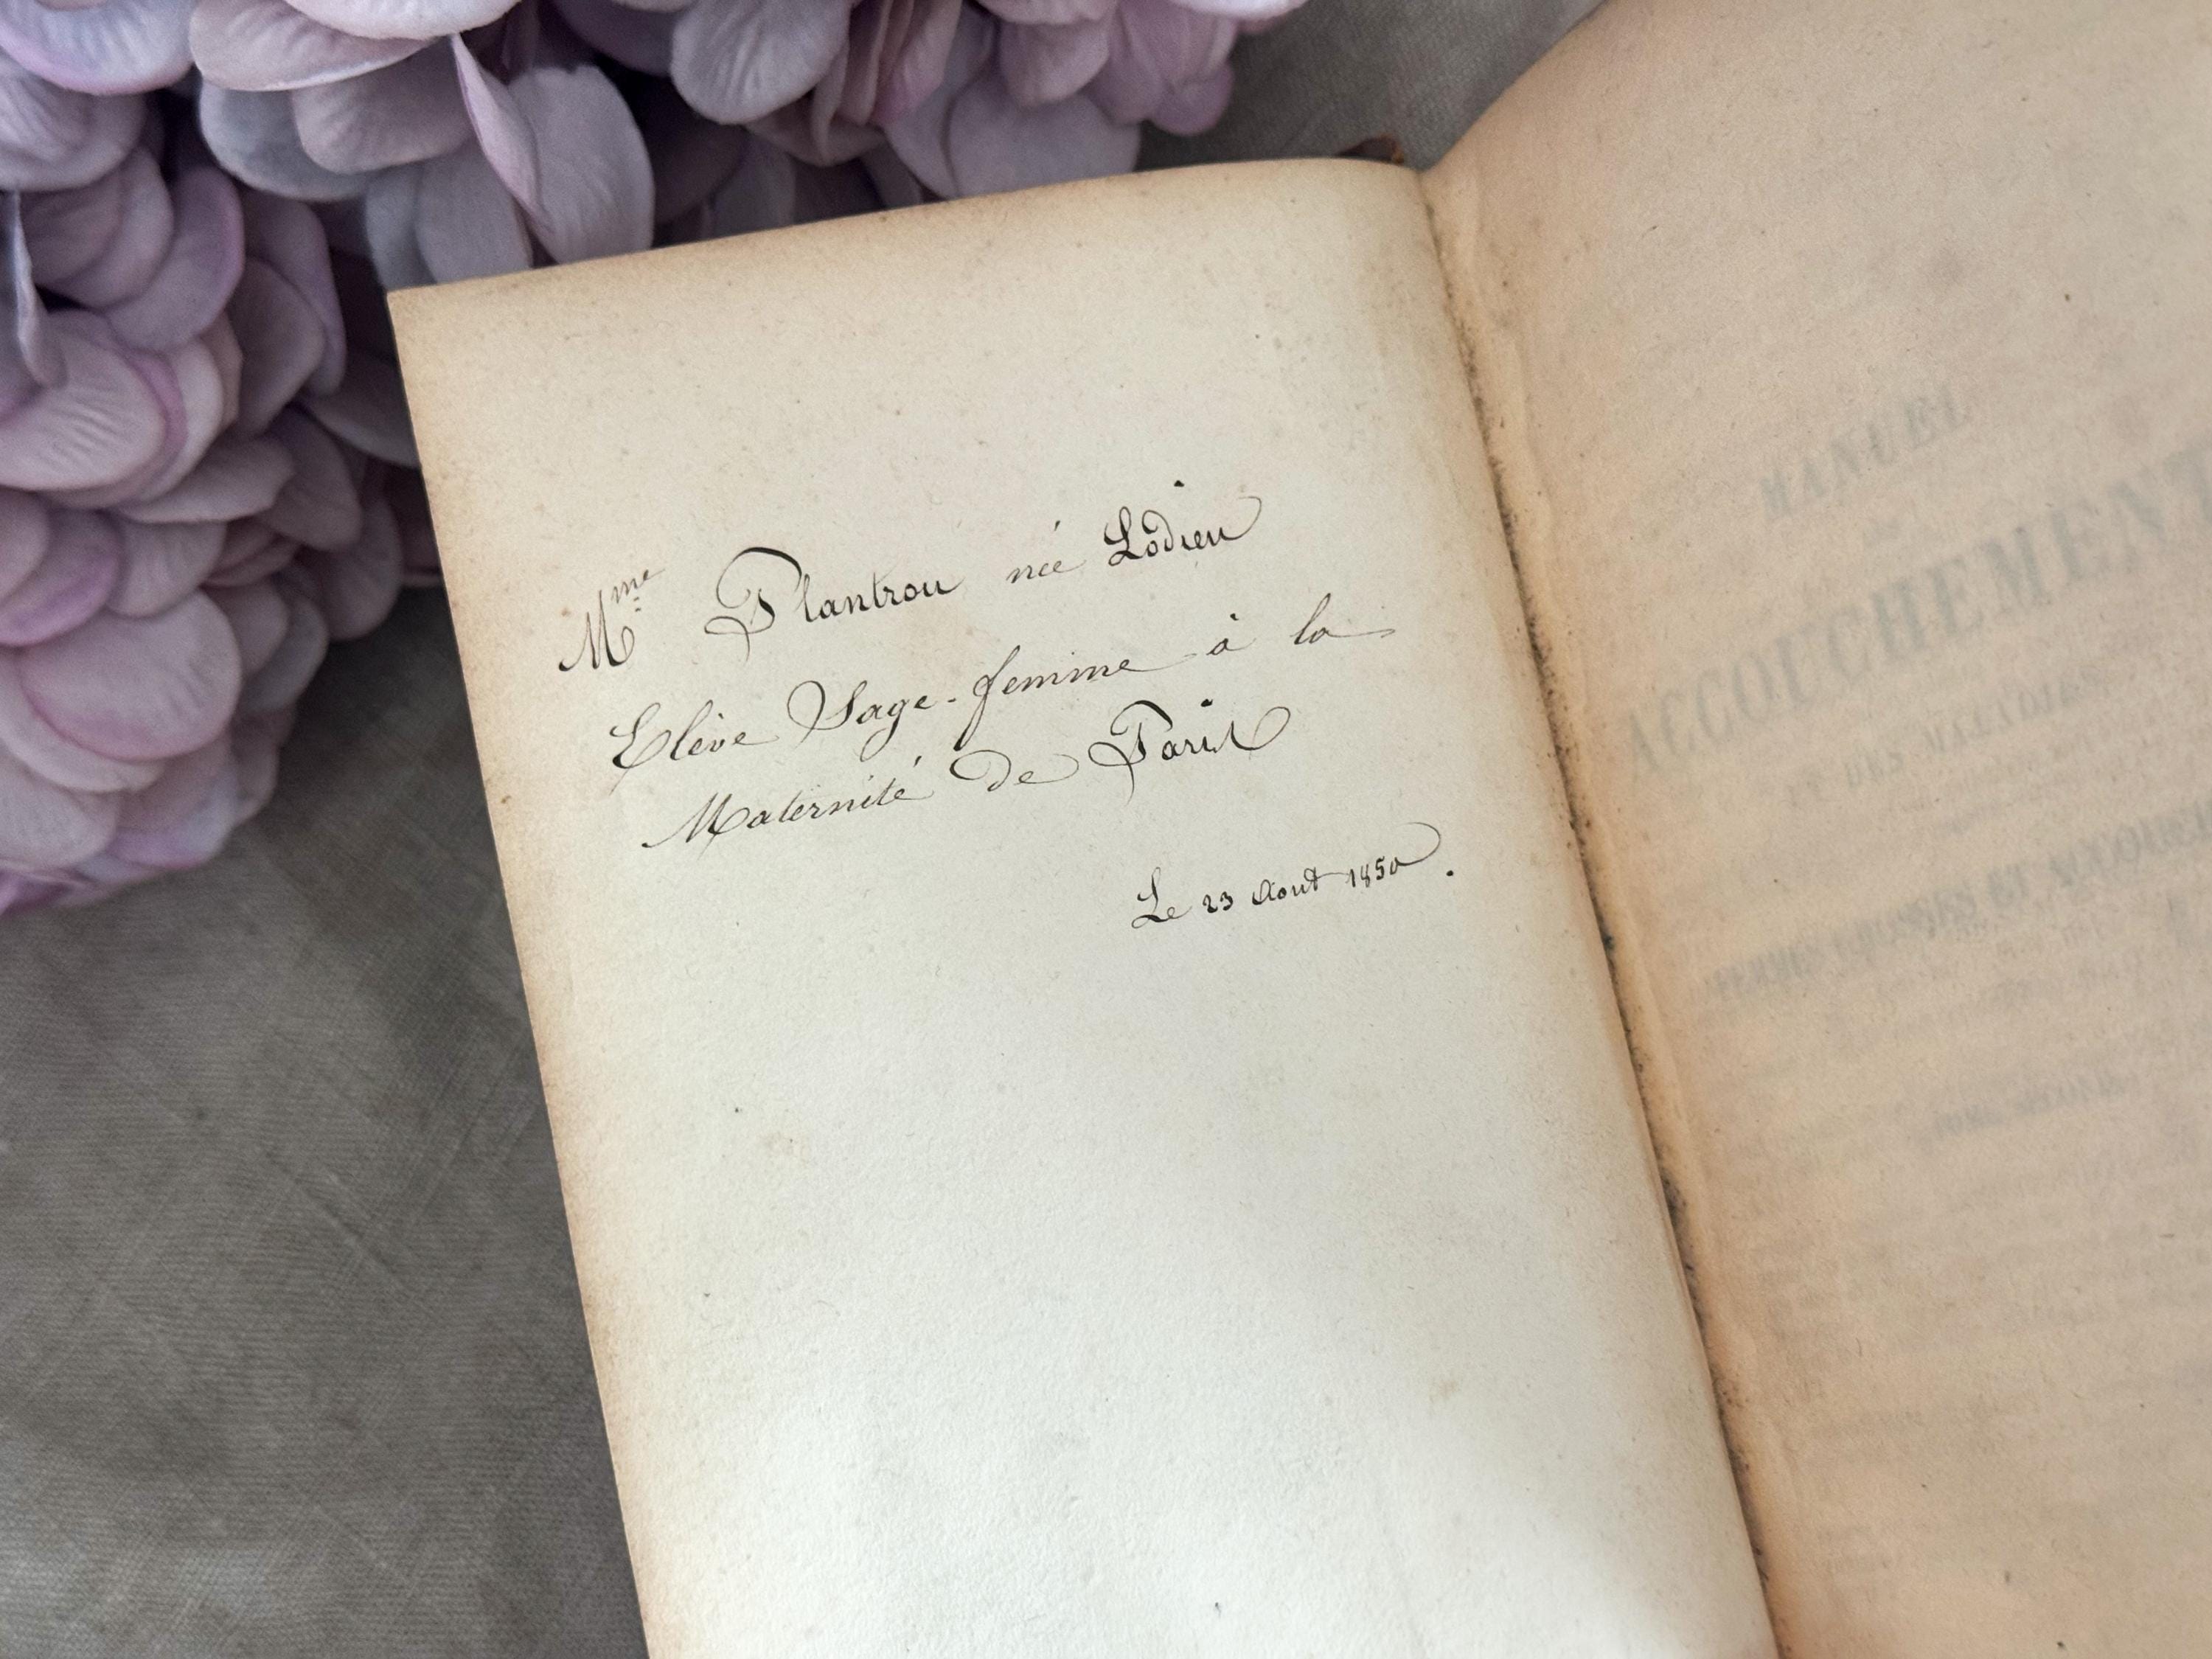 Mme Plantrou née Lodieu
Elève Sage-femme à la
Maternité de Paris
Le 23 Aout 1850.
MANUEL
ACCOUCHEMENT
ET DES MALADIES
FEMMES GROSSES ET ACCOUCHÉES